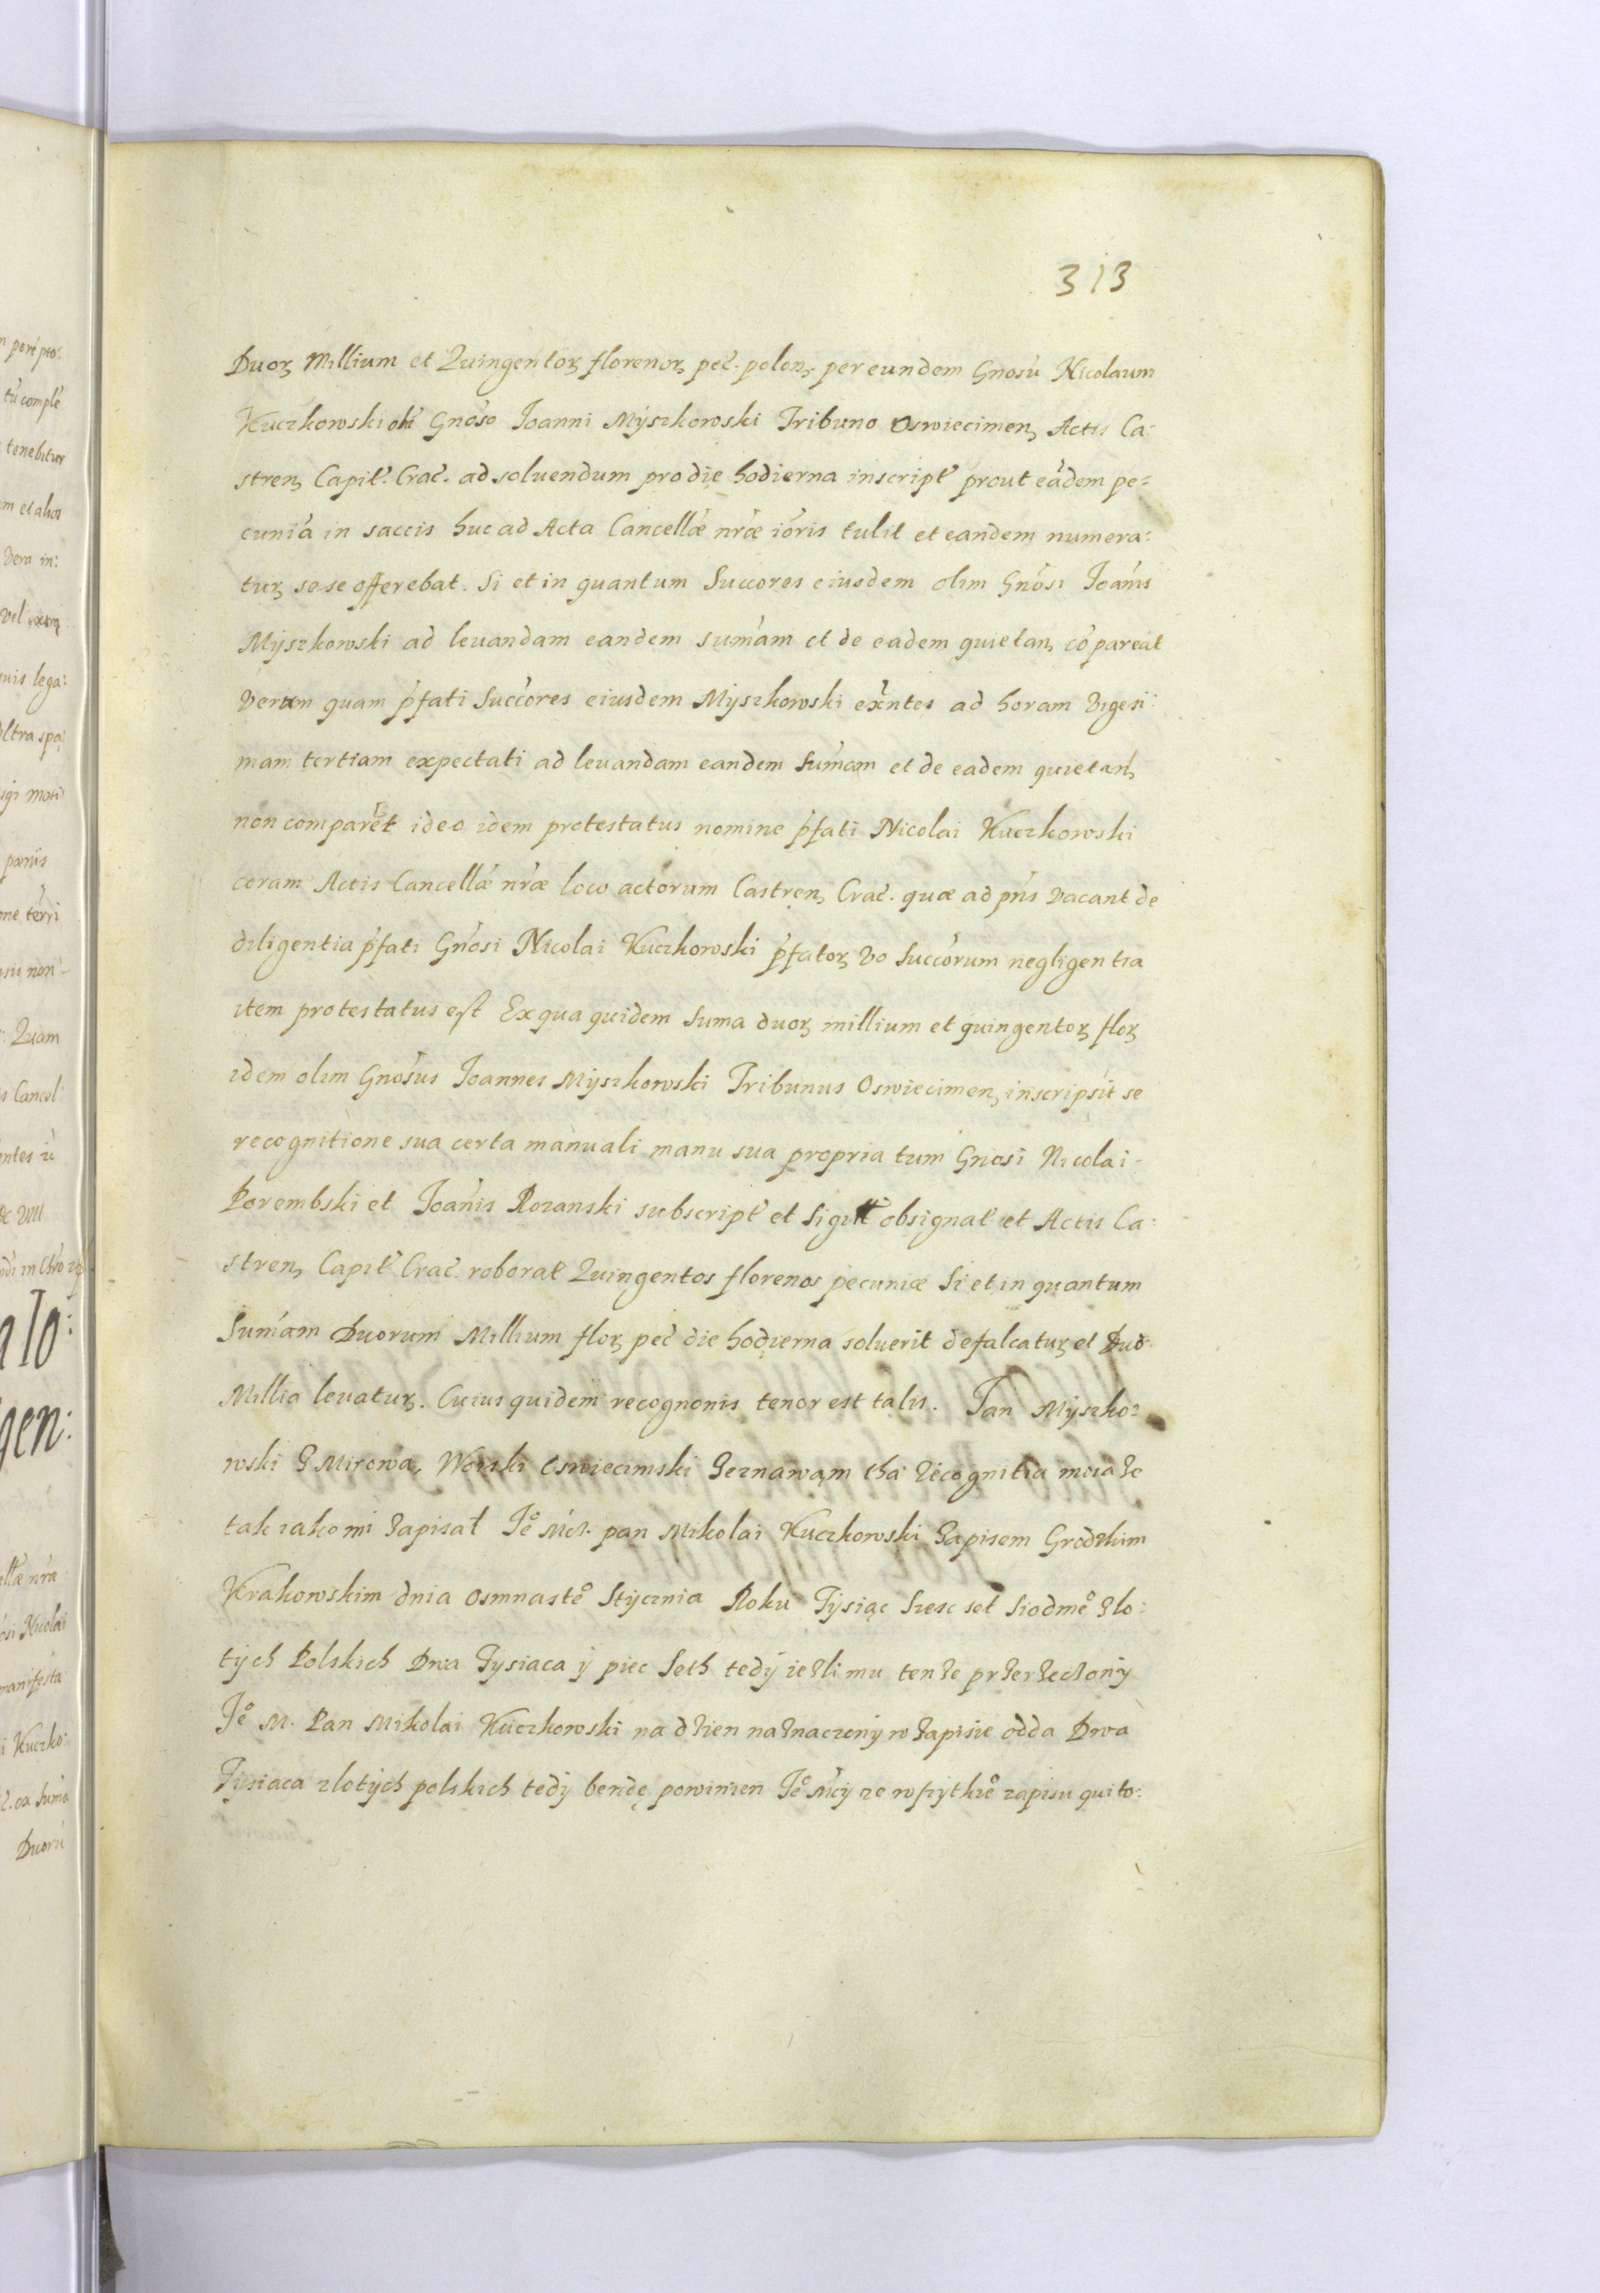 313
Duoꝝ Millium et Quingentoꝝ florenoꝝ pec̃. polon̨ per eundem Gnosũ Nicolaum
Kuczkowski olĩ Gnõso Ioanni Mÿszkowski Tribuno Oswiecimen̨ Actis Ca:
stren̨ Capit̃. Crac̃. ad soluendum pro die hodierna inscript̃ prout eãdem pe=
cuniã in saccis huc ad Acta Cancellæ̃ nr̃æ iõris tulit et eandem numera:
tuꝝ se se offerebat. Si et in quantum Succores eiusdem olim Gnõsi Joañis
Mÿszkowski ad leuandam eandem sum̃am et de eadem quietan̨ cõpareat
Verum quam p̃fati Succ̃ores eiusdem Mÿszkowski ex̃ntes ad horam Vigesi:
mam tertiam expectati ad leuandam eandem Sum̃am et de eadem quietan̨
non comparẽt ideo idem protestatus nomine p̃fati Nicolai Kuczkowski
coram Actis Cancellæ̃ nr̃æ loco actorum Castren̨ Crac̃. quæ ad pñs Vacant de
diligentia p̃fati Gñosi Nicolai Kuczkowski p̃fatoꝝ Vo Succõrum negligentia
item protestatus est Ex qua quidem Suma duoꝝ millium et quingentoꝝ floꝝ
idem olim Gnõsus Joannes Mÿszkowski Tribunus Oswiecimen̨ inscripsit se
recognitione sua certa manuali manu sua propria tum Gnosi Nicolai-
Porembski et Joañis Rozanski subscript̃ et Sigill̃ obsignat̃ et Actis Ca:
stren̨ Capit̃ Crac̃. roborat̃ Quingentos florenos pecuniæ Si et in quantum
Sum̃am Duorum Millium floꝝ pec̃ die hodierna soluerit defalcatuꝝ et Duo
Millia leuatuꝝ. Cuius quidem recognonis tenor est talis. Jan Mÿszko=
wski z Mirowa, Woiski Oswiecimski zeznawam tha recognitia moia ze
tak iako mi zapisał Je͛ Mcz. pan Mikolai Kuczkowski zapisem Grodzkim
Krakowskim dnia osmnaste͛ Stÿcznia Roku Tÿsiąc Szesc set Siodme͛ zlo:
tÿch Polskich Dwa Tÿsiaca ÿ piec Seth tedÿ iezli mu tenze przerzeczonÿ
Je͛ M. Pan Mikolai Kuczkowski na dzien naznaczonÿ w zapisie odda Dwa
Tÿsiaca zlotÿch polskich tedÿ bendę powinien Je͛ Mcÿ ze wszÿtkie͛ zapisu quito: